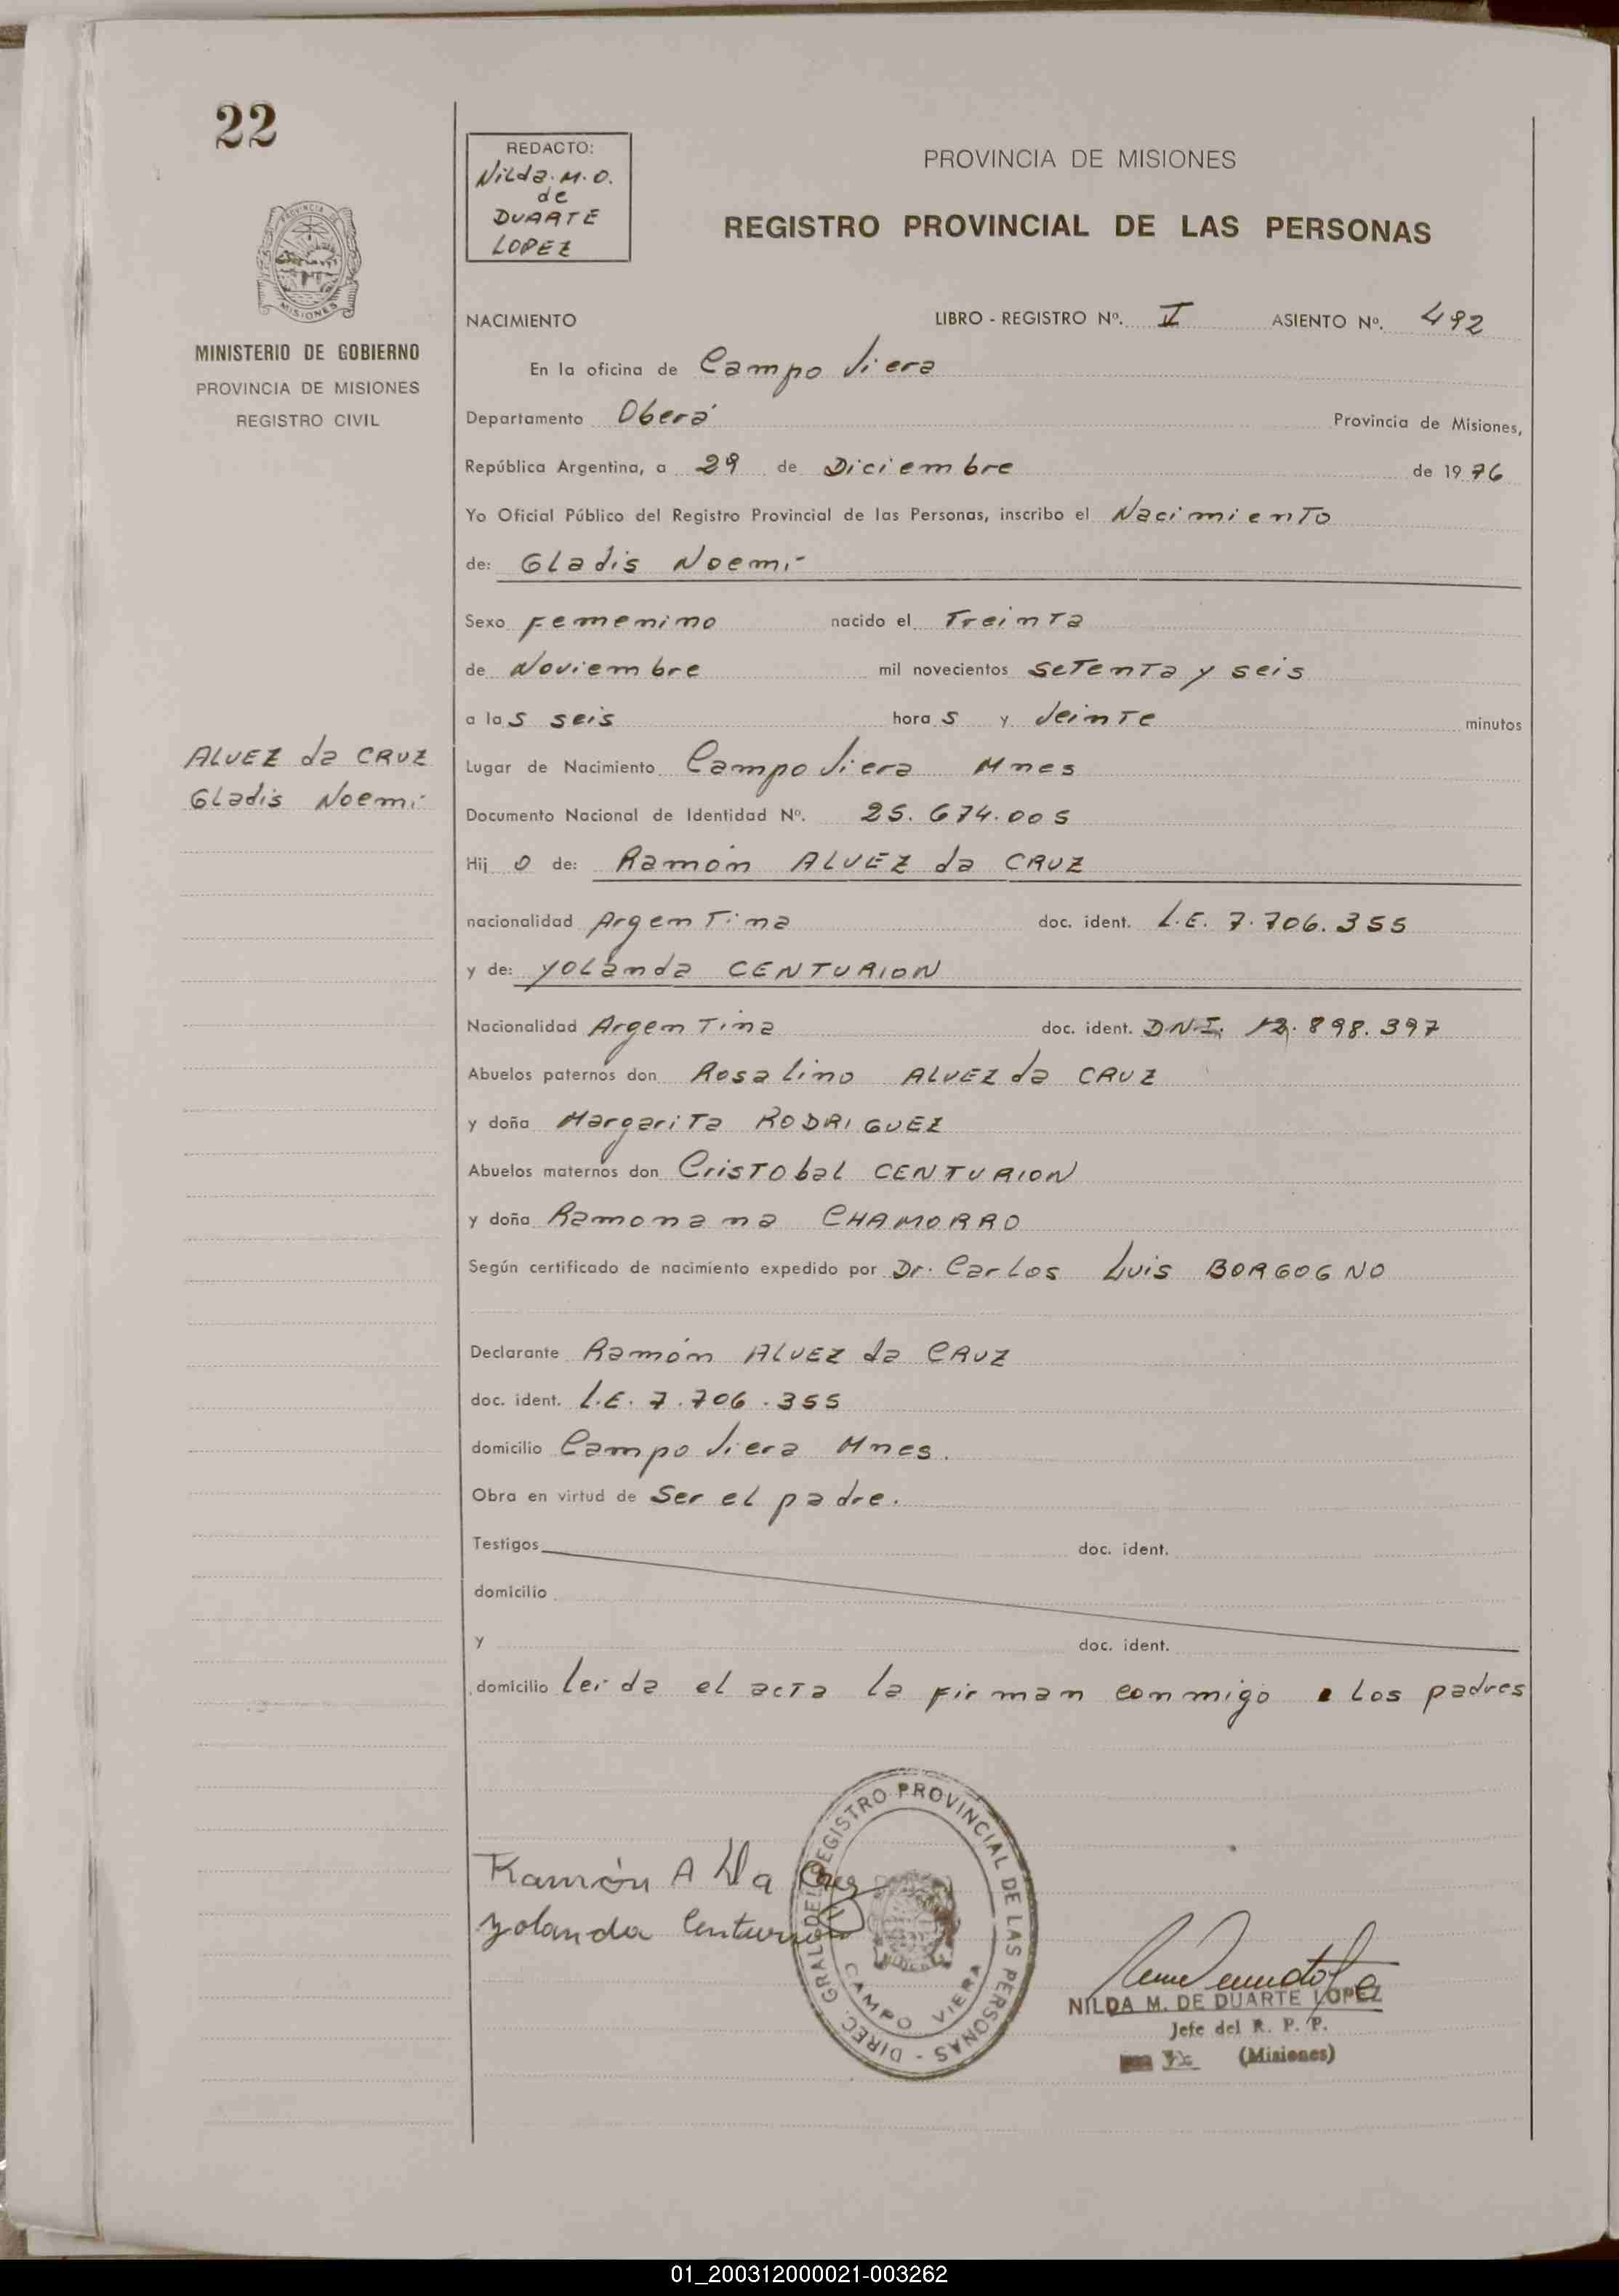 22
REDACTO:
Nilda. M. O.
de
DUARTE
LOPEZ
PROVINCIA DE MISIONES
REGISTRO PROVINCIAL DE LAS PERSONAS
PROVINCIA DE
MISIONES
MINISTERIO DE GOBIERNO
PROVINCIA DE MISIONES
REGISTRO CIVIL
NACIMIENTO LIBRO - REGISTRO Nº. V ASIENTO Nº. 492
En la oficina de Campo Viera
Departamento Oberá Provincia de Misiones,
República Argentina, a 29 de Diciembre de 1976
Yo Oficial Público del Registro Provincial de las Personas, inscribo el Nacimiento
de: Gladis Noemí
Sexo Femenino nacido el Treinta
de Noviembre mil novecientos setenta y seis
a las seis horas y Veinte minutos
ALVEZ da CRUZ
Gladis Noemí
Lugar de Nacimiento Campo Viera Mnes
Documento Nacional de Identidad Nº. 25.674.005
Hijo de: Ramón ALVEZ da CRUZ
nacionalidad Argentina doc. ident. L.E. 7.706.355
y de: Yolanda CENTURION
Nacionalidad Argentina doc. ident. D.N.I. 12.898.397
Abuelos paternos don Rosalino ALVEZ da CRUZ
y doña Margarita RODRIGUEZ
Abuelos maternos don Cristobal CENTURION
y doña Ramonana CHAMORRO
Según certificado de nacimiento expedido por Dr. Carlos Luis BORGOGNO
Declarante Ramón ALVEZ da CRUZ
doc. ident. L.E. 7.706.355
domicilio Campo Viera Mnes.
Obra en virtud de Ser el padre.
Testigos doc. ident.
domicilio
y doc. ident.
domicilio leída el acta la firman conmigo los padres
Ramón A Da Cruz
Yolanda Centurion
DIREC. GRAL. DEL REGISTRO PROVINCIAL DE LAS PERSONAS -
CAMPO VIERA
NILDA M. DE DUARTE LOPEZ
Jefe del R. P. P.
(Misiones)
01_200312000021-003262